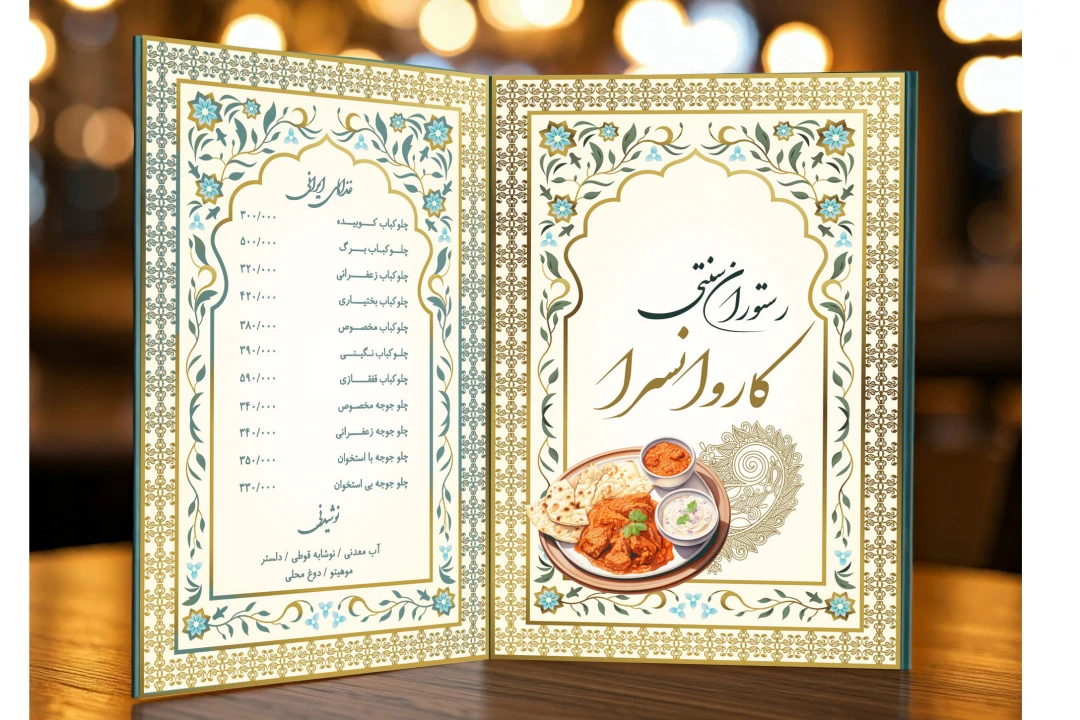 رستوران سنتی
کاروانسرا
غذاهای ایرانی
چلوکباب کوبیده ۳۰۰/۰۰۰
چلوکباب برگ ۵۰۰/۰۰۰
چلوکباب زعفرانی ۳۲۰/۰۰۰
چلوکباب بختیاری ۴۲۰/۰۰۰
چلوکباب مخصوص ۳۸۰/۰۰۰
چلوکباب نگینی ۳۹۰/۰۰۰
چلوکباب قفقازی ۵۹۰/۰۰۰
چلو جوجه مخصوص ۳۴۰/۰۰۰
چلو جوجه زعفرانی ۳۴۰/۰۰۰
چلو جوجه با استخوان ۳۵۰/۰۰۰
چلو جوجه بی استخوان ۳۳۰/۰۰۰
نوشیدنی
آب معدنی / نوشابه قوطی / دلستر
موهیتو / دوغ محلی